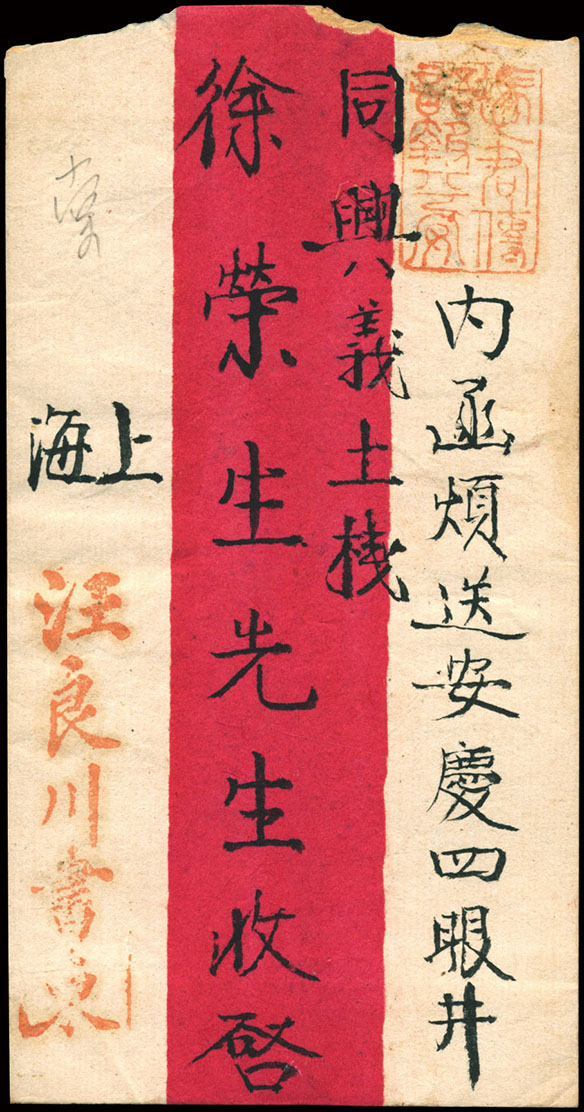 內函煩送安慶四眼井
同興義土栈
徐榮生先生收啓
上海
汪良川書柬